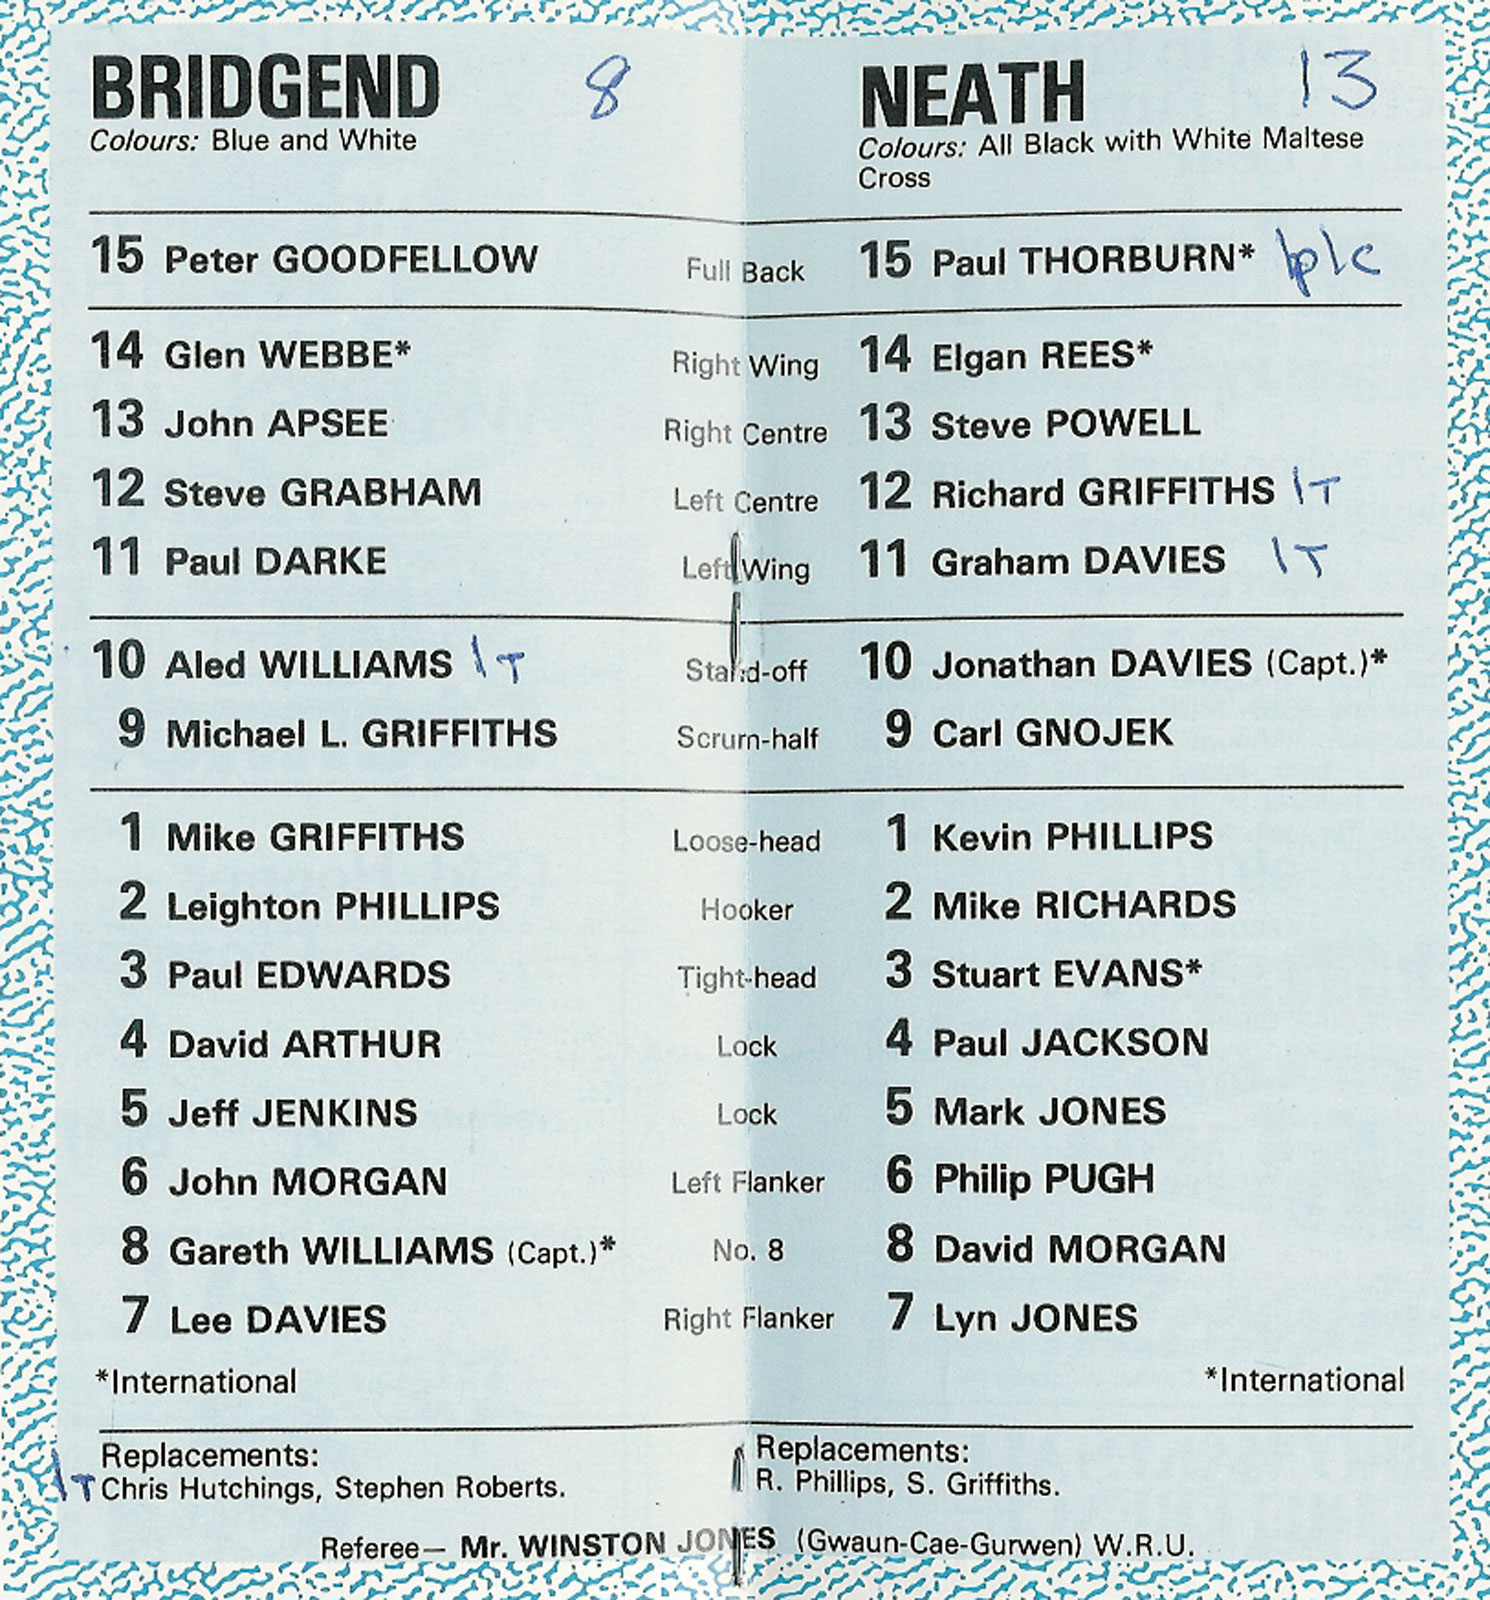 BRIDGEND 8 NEATH 13
Colours: Blue and White Colours: All Black with White Maltese
Cross
15 Peter GOODFELLOW Full Back 15 Paul THORBURN*
14 Glen WEBBE* Right Wing 14 Elgan REES*
13 John APSEE Right Centre 13 Steve POWELL
12 Steve GRABHAM Left Centre 12 Richard GRIFFITHS 1T
11 Paul DARKE Left Wing 11 Graham DAVIES 1T
10 Aled WILLIAMS 1T Stand-off 10 Jonathan DAVIES (Capt.)*
9 Michael L. GRIFFITHS Scrum-half 9 Carl GNOJEK
1 Mike GRIFFITHS Loose-head 1 Kevin PHILLIPS
2 Leighton PHILLIPS Hooker 2 Mike RICHARDS
3 Paul EDWARDS Tight-head 3 Stuart EVANS*
4 David ARTHUR Lock 4 Paul JACKSON
5 Jeff JENKINS Lock 5 Mark JONES
6 John MORGAN Left Flanker 6 Philip PUGH
8 Gareth WILLIAMS (Capt.)* No. 8 8 David MORGAN
7 Lee DAVIES Right Flanker 7 Lyn JONES
*International *International
Replacements: Replacements:
1T Chris Hutchings, Stephen Roberts. R. Phillips, S. Griffiths.
Referee— Mr. WINSTON JONES (Gwaun-Cae-Gurwen) W.R.U.